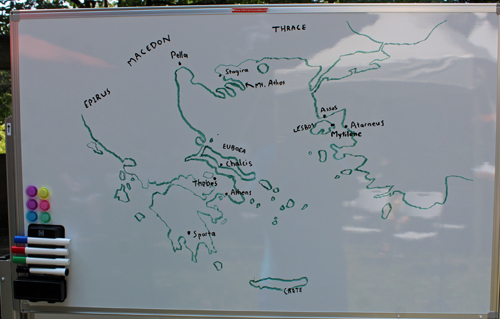 THRACE
MACEDON
Pella
Stagira
Mt. Athos
EPIRUS
Assos
LESBOS
Atarneus
Mytilene
EUBOEA
Chalcis
Thebes
Athens
Sparta
CRETE